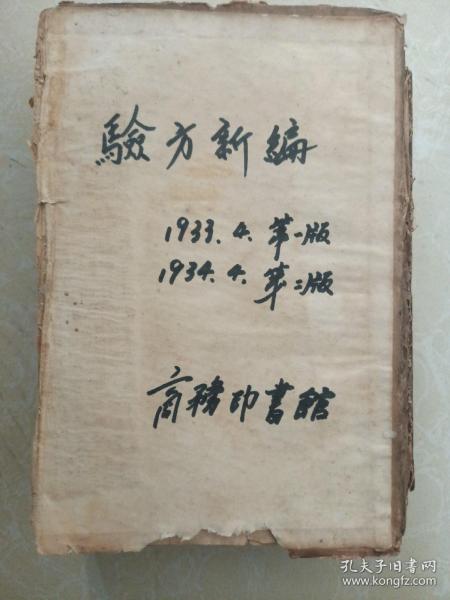 驗方新编
1933.4.第一版
1934.4.第二版
商務印書館
孔夫子旧书网
www.kongfz.com